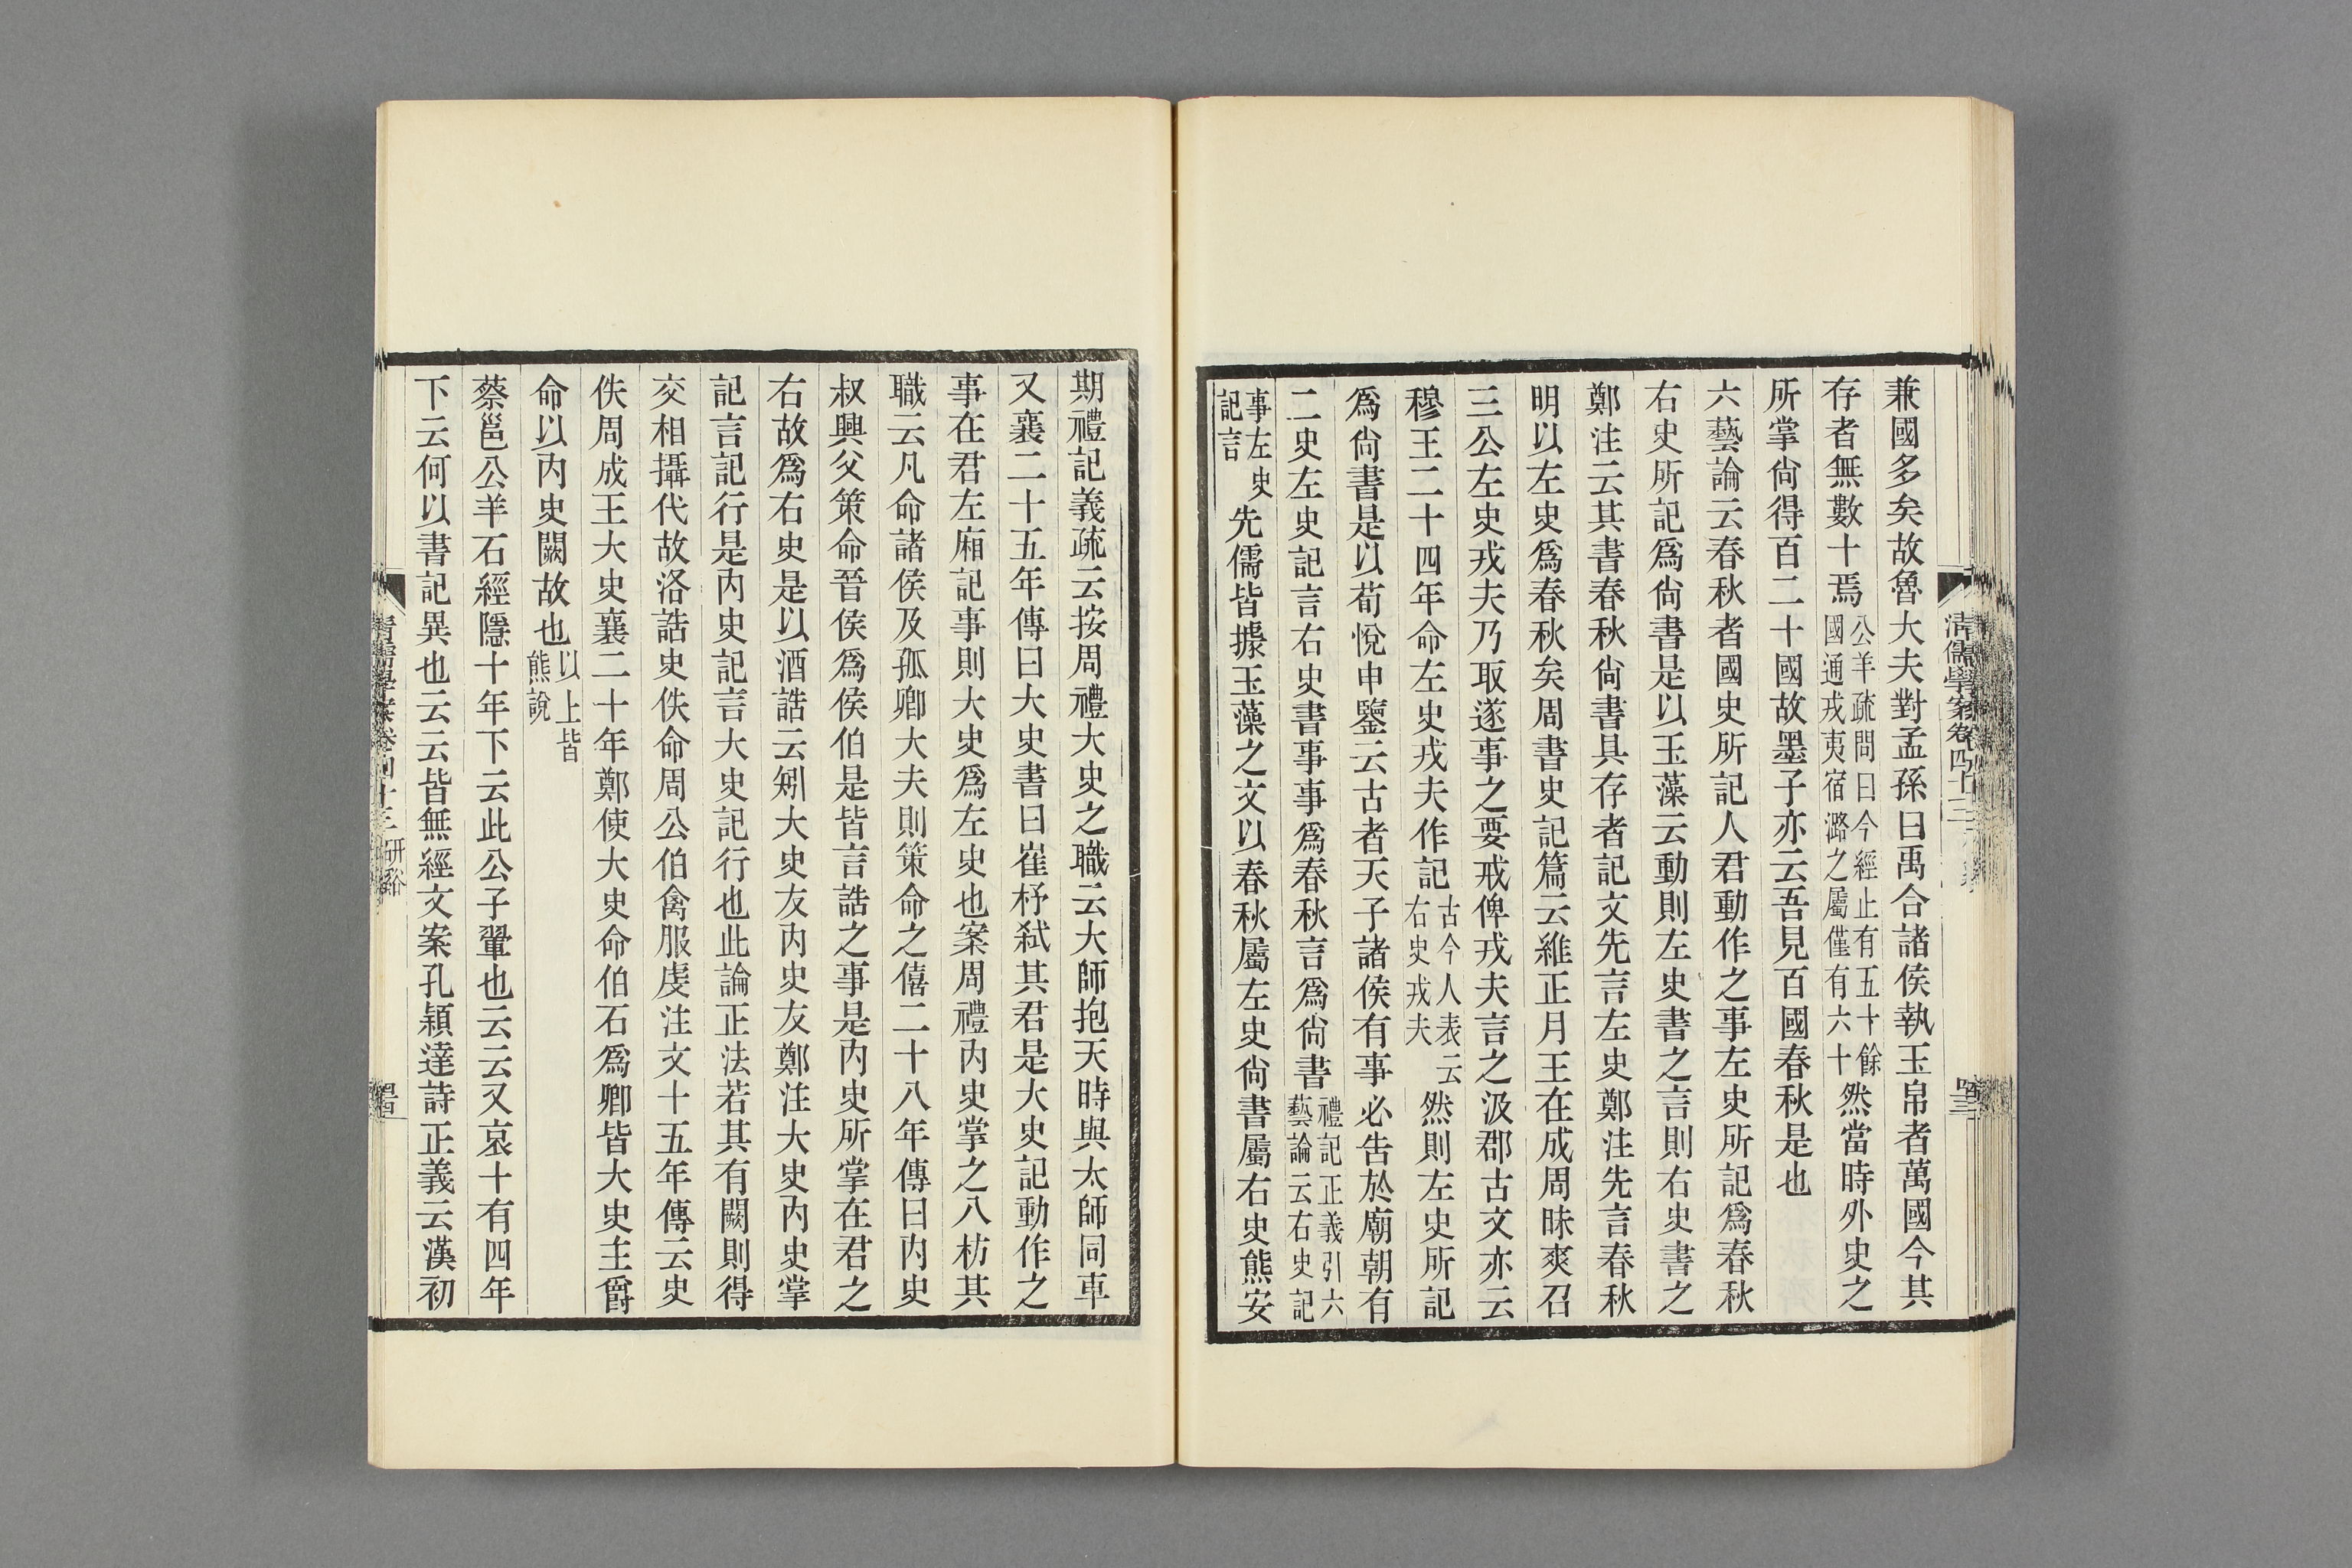 兼國多矣故魯大夫對孟孫曰禹合諸侯執玉帛者萬國今其
存者無數十焉公羊疏問曰今經止有五十餘國通戎夷宿潞之屬僅有六十然當時外史之
所掌尙得百二十國故墨子亦云吾見百國春秋是也
六藝論云春秋者國史所記人君動作之事左史所記爲春秋
右史所記爲尙書是以玉藻云動則左史書之言則右史書之
鄭注云其書春秋尙書具存者記文先言左史鄭注先言春秋
明以左史爲春秋矣周書史記篇云維正月王在成周昧爽召
三公左史戎夫乃取遂事之要戒俾戎夫言之汲郡古文亦云
穆王二十四年命左史戎夫作記古今人表云右史戎夫然則左史所記
爲尙書是以荀悅申鑒云古者天子諸侯有事必告於廟朝有
二史左史記言右史書事事爲春秋言爲尙書禮記正義引六藝論云右史記
事左史記言先儒皆據玉藻之文以春秋屬左史尙書屬右史熊安
清儒學案卷四十三
期禮記義疏云按周禮大史之職云大師抱天時與太師同車
又襄二十五年傳曰大史書曰崔杼弒其君是大史記動作之
事在君左廂記事則大史爲左史也案周禮內史掌之八枋其
職云凡命諸侯及孤卿大夫則策命之僖二十八年傳曰內史
叔興父策命晉侯爲侯伯是皆言誥之事是內史所掌在君之
右故爲右史是以酒誥云矧大史友內史友鄭注大史內史掌
記言記行是內史記言大史記行也此論正法若其有闕則得
交相攝代故洛誥史佚命周公伯禽服虔注文十五年傳云史
佚周成王大史襄二十年鄭使大史命伯石爲卿皆大史主爵
命以內史闕故也以上皆熊說
蔡邕公羊石經隱十年下云此公子翬也云云又哀十有四年
下云何以書記異也云云皆無經文案孔穎達詩正義云漢初
清儒學案卷四十三 研谿